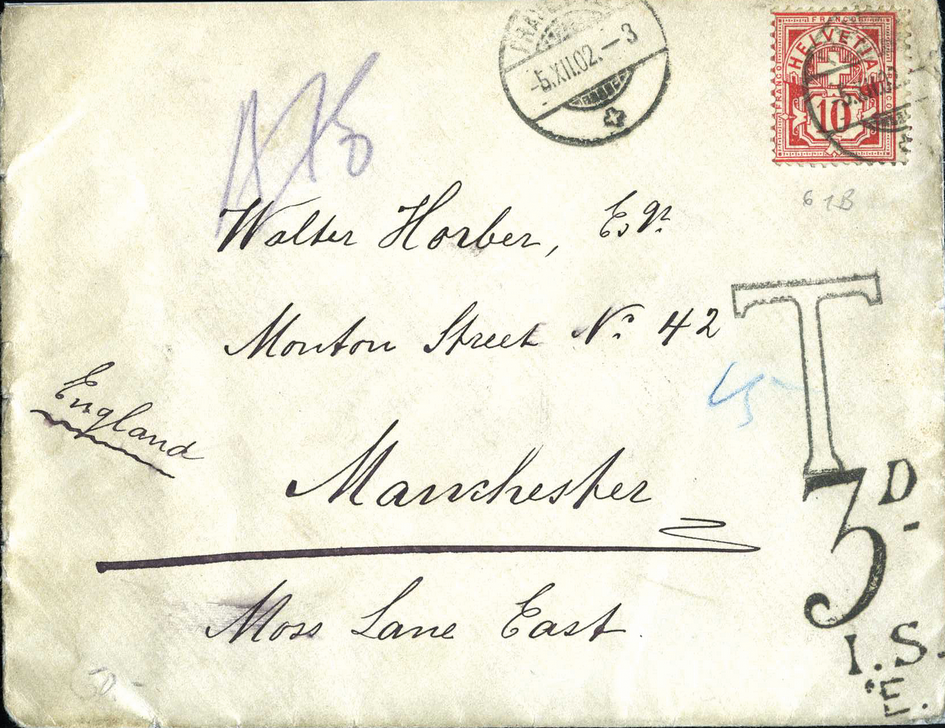 -5.XII.02.-3
FRANCO
HELVETIA
10
61B
Walter Horber, Esqr.
Monton Street No. 42
England
Manchester
Moss Lane East.
T
3D.
I.S.
E.
50.-